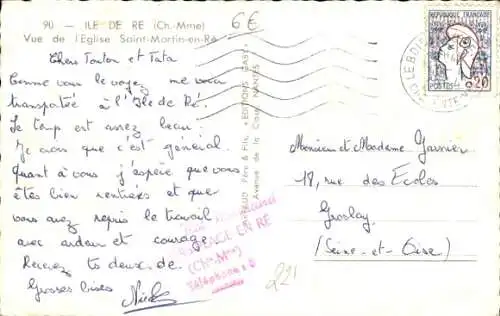 90 - ILE DE RE (Ch.-Mme)
6€
Vue de l'Eglise Saint-Martin-en-Ré
Chers Tonton et Tata
Comme vous le voyez me voici
transportée à l'Ile de Ré.
Le temp est assez beau.
Je crois que c'est general.
Quant à vous j'espère que vous
êtes bien rentrées et que
vous avez repris le travail
avec ardeur et courage
Recevez ts deux de
Grosses bises
ARTAUD Père & Fils, «EDITIONS GABY»
Avenue de la Close NANTES
REPUBLIQUE FRANÇAISE
POSTES
0,20
LE BOIS
Monsieur et Madame Garnier
18, rue des Ecoles
Groslay
(Seine-et-Oise)
EN RE
(Ch.-Mme)
Téléphone : 8
221